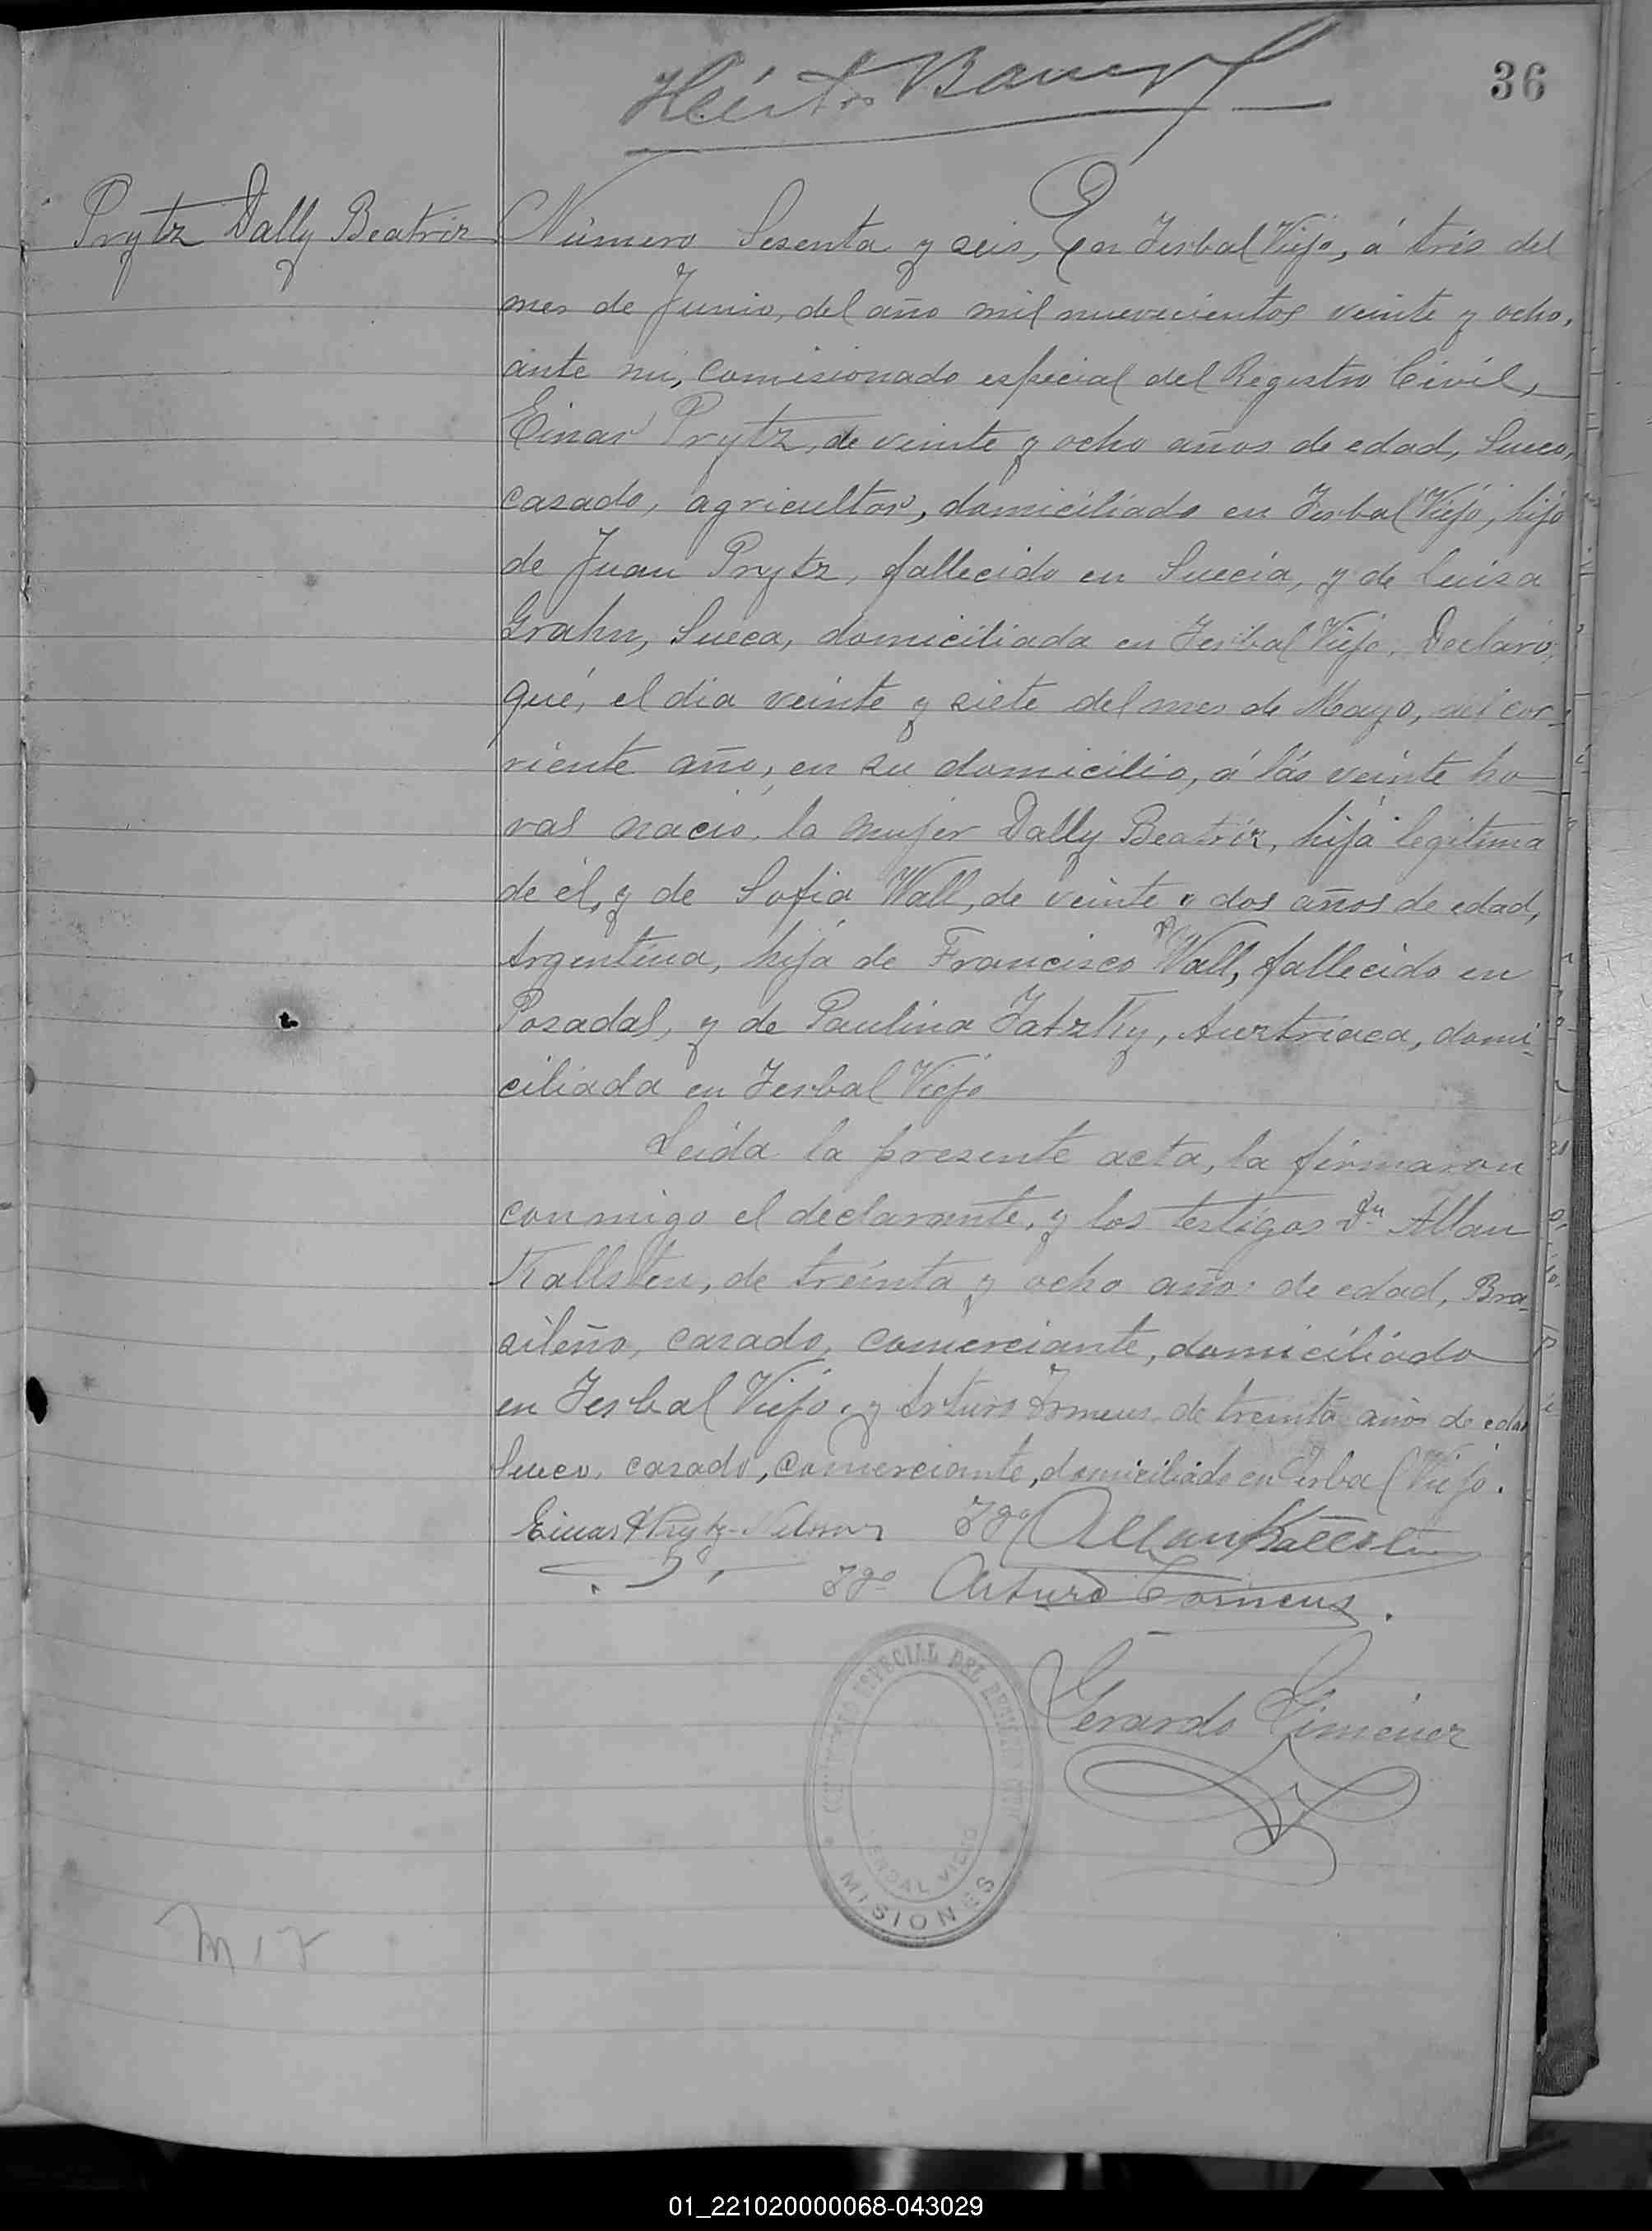 36
Prytz Dally Beatriz
Número Sesenta y seis, En Yerbal Viejo, á trés del
mes de Junio, del año mil nuevecientos veinte y ocho,
ante mi, comisionado especial del Registro Civil,
Einar Prytz, de veinte y ocho años de edad, Sueco,
casado, agricultor, domiciliado en Yerbal Viejo, hijo
de Juan Prytz, fallecido en Suecia, y de Luisa
Grahn, Sueca, domiciliada en Yerbal Viejo. Declaró:
qué, el dia veinte y siete del mes de Mayo, del cor-
riente año, en su domicilio, á lás veinte ho-
ras nació, la mujer Dally Beatríz, hija legitima
de él, y de Sofia Wall, de veinte y dos años de edad,
Argentina, hija de Francisco Wall, fallecido en
Posadas, y de Paulina Tatzky, Austriaca, domi-
ciliada en Yerbal Viejo
Leida la presente acta, la firmaron
conmigo el declarante, y los testigos Dn Allan
Kallsten, de treinta y ocho años de edad, Bra-
sileño, casado, comerciante, domiciliado
en Yerbal Viejo, y Arturo Torneus, de treinta años de edad
Sueco, casado, comerciante, domiciliado en Yerbal Viejo.
Einar Prytz
Tgo Allan Kallsten
Tgo Arturo Torneus.
Gerardo Giménez
ESPECIAL DEL
YERBAL VIEJO
MISIONES
01_221020000068-043029